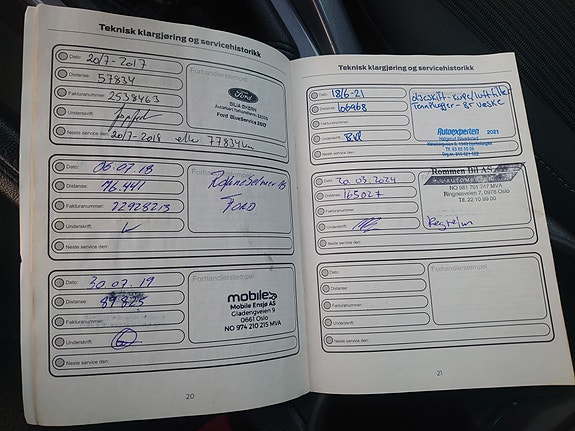 Teknisk klargjøring og servicehistorikk
Dato: 20/7-2017
Distanse: 57834
Fakturanummer: 2538463
Underskrift:
Neste service den: 20/7-2018 eller 77834km
Forhandlerstempel
Ford
Ford BlueService 2017
Dato: 06.07.18
Distanse: 78.441
Fakturanummer: 22928213
Underskrift:
Neste service den:
Forhandlerstempel
FORD
Dato: 30.07.19
Distanse:
Fakturanummer:
Underskrift:
Neste service den:
Forhandlerstempel
mobile
Mobile Ensjø AS
Gladengveien 9
0661 Oslo
NO 974 210 215 MVA
20
Teknisk klargjøring og servicehistorikk
Dato: 18/6-21
Distanse: 106968
Fakturanummer:
Underskrift:
Neste service den:
oljeskift-kupe/luftfilter
Tennplugger-Br væske
Autoexperten 2021
Dato: 20.03.2024
Distanse: 165027
Fakturanummer:
Underskrift:
Neste service den:
Rommen Bil AS
NO 981 701 747 MVA
Ringnesveien 7, 0978 Oslo
Tlf. 22 10 99 00
Regreim
Dato:
Distanse:
Fakturanummer:
Underskrift:
Neste service den:
Forhandlerstempel
21